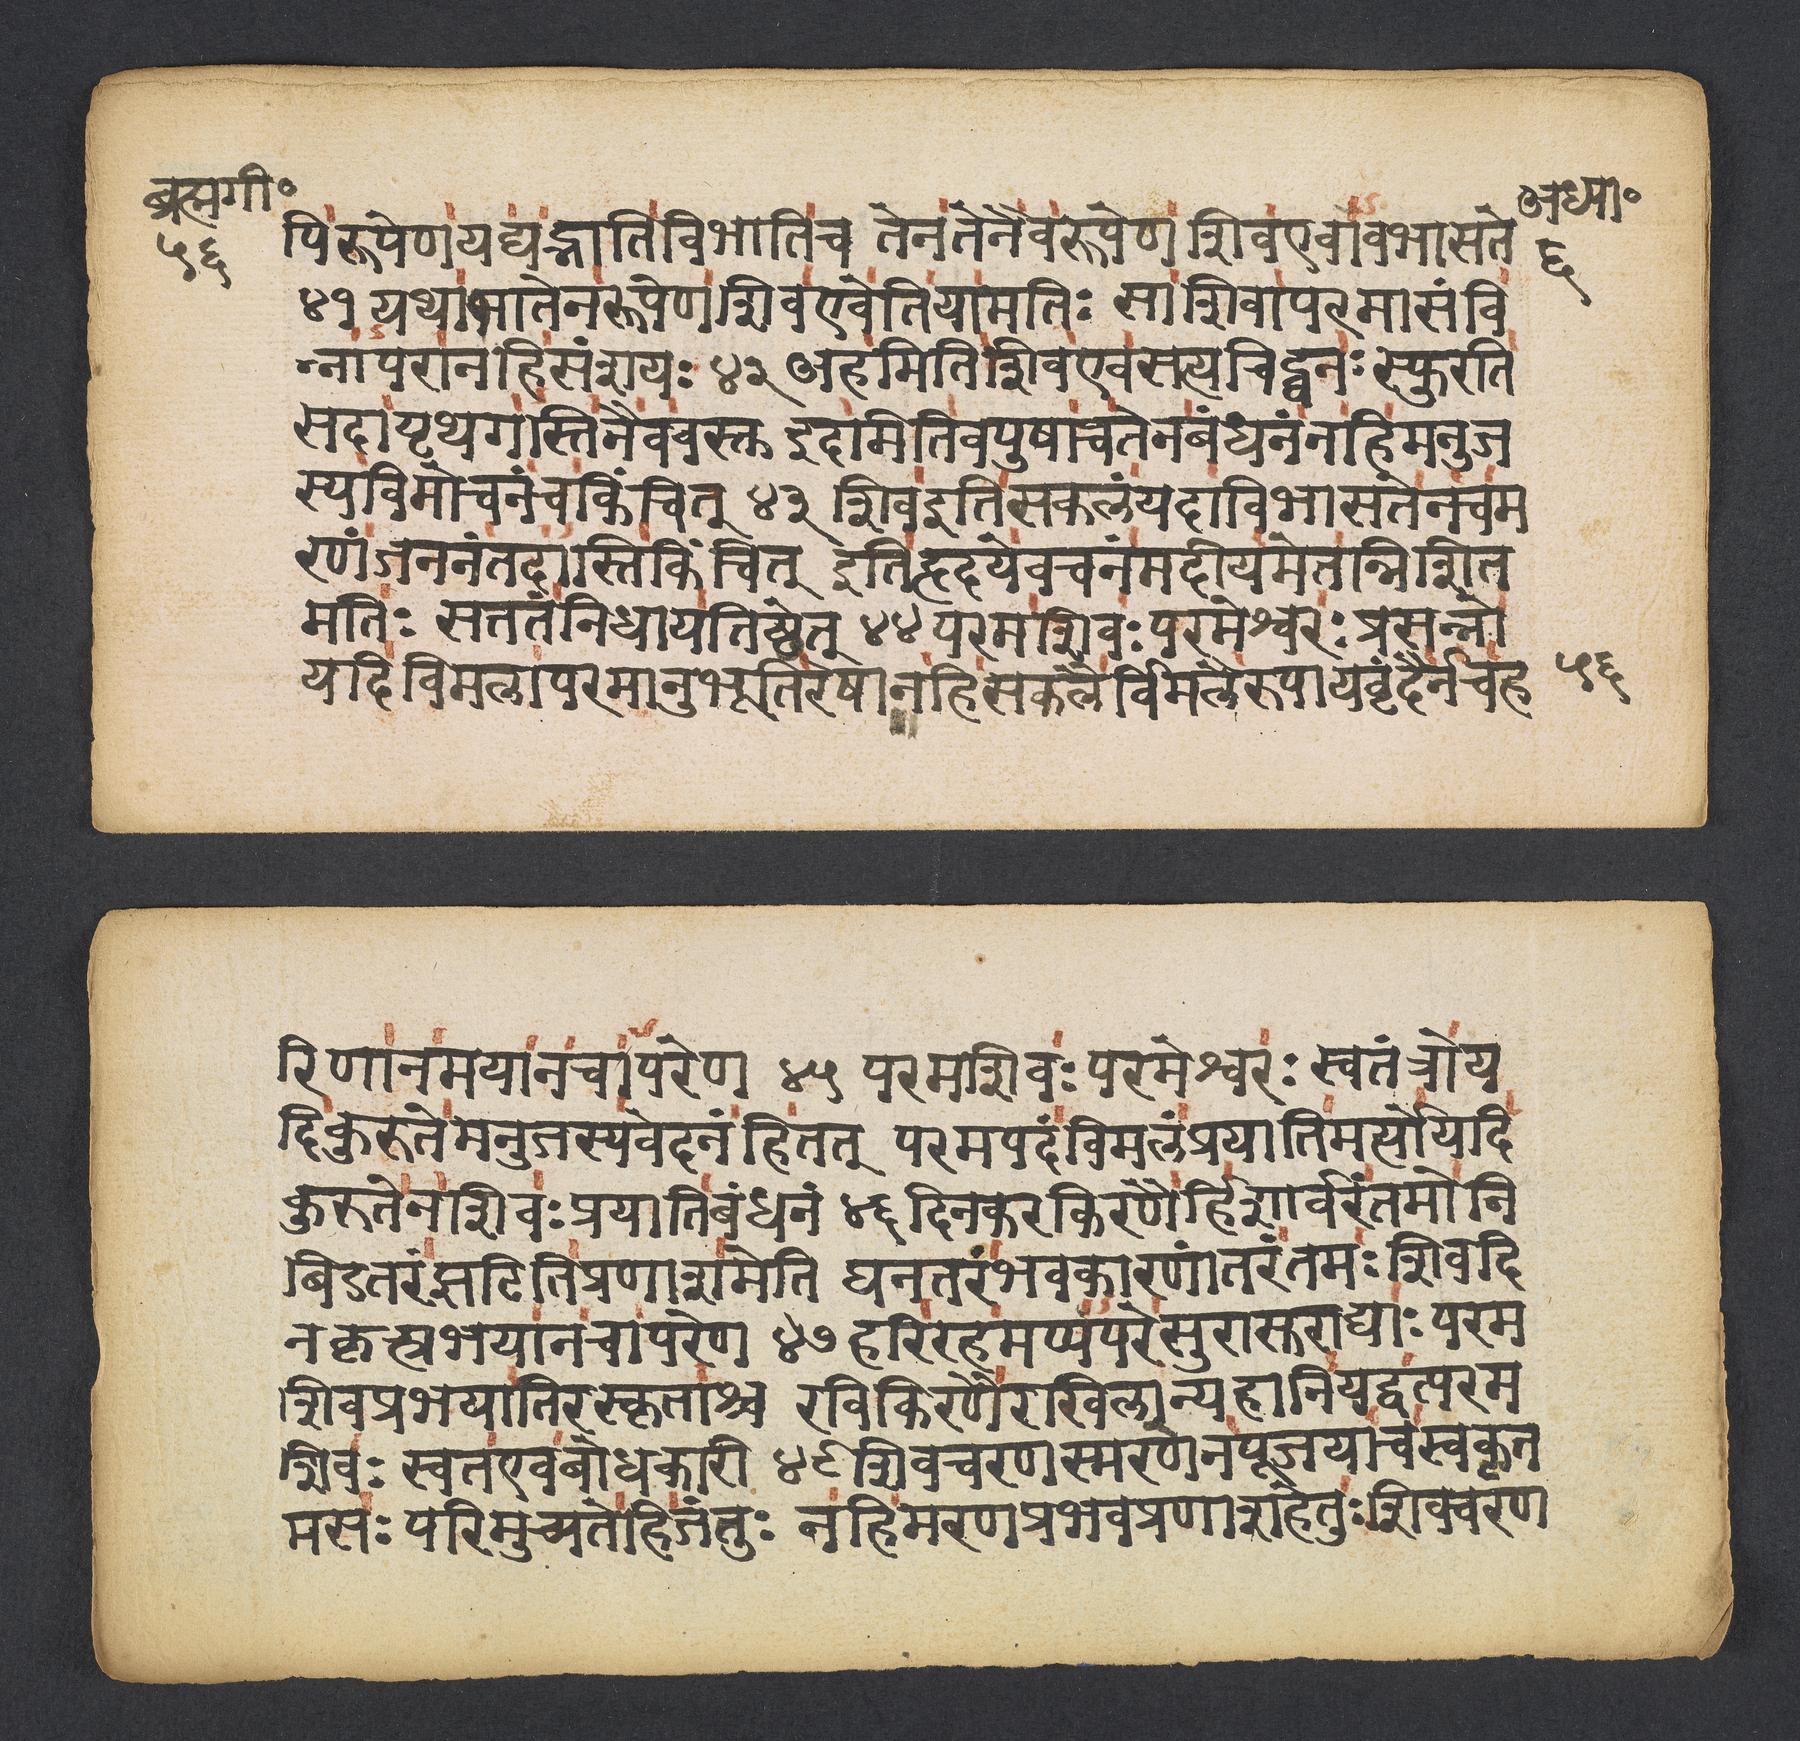 ब्रह्मगी॰
५६
अध्या॰
६
पिरूपेणयद्यद्भातिविभातिच तेनतेनैवरूपेण शिवएवावभासते
४१ यथाभातेनरूपेणशिवएवेतियामतिः सा शिवापरमासंवि
न्नापरानहिसंशयः ४२ अहमितिशिवएवसत्यचिद्घनः स्फुरति
सदापृथगस्तिनैववस्तु इदमितिवपुषाचतेनबंधनंनहिमनुज
स्यविमोचनंचकिंचित् ४३ शिवइतिसकलंयदाविभासतेनचम
रणंजननंतदास्तिकिंचित् इतिहृदयेवचनंमदीयमेतन्निशित
मतिः सततंनिधायतिष्ठेत् ४४ परमशिवःपरमेश्वरःप्रसन्नो
यदि विमलापरमानुभूतिरेषानहिसकलैर्विमलैरुपायवृंदैर्नचह
५६
रिणानमयानचापरेण ४५ परमशिवः परमेश्वरः स्वतंत्रोय
दिकुरुतेमनुजस्यवेदनंहितत् परमपदंविमलंप्रयातिमर्त्योयदि
कुरुतेनशिवःप्रयातिबंधनं ४६ दिनकरकिरणैर्हिशार्वरंतमोनि
बिडतरंझटितिप्रणाशमेति घनतरंभवकारणांतरंतमःशिवदि
नकृत्प्रभयानचापरेण ४७ हरिरहमप्यपरेसुरासुराद्याःपरम
शिवप्रभयातिरस्कृताश्च रविकिरणैरखिलान्यहानियद्वत्परम
शिवः स्वतएवबोधकारी ४८ शिवचरणस्मरणेनपूजयाचस्वकृत
मसः परिमुच्यतेहिजंतुः नहिमरणप्रभवप्रणाशहेतुःशिवचरण